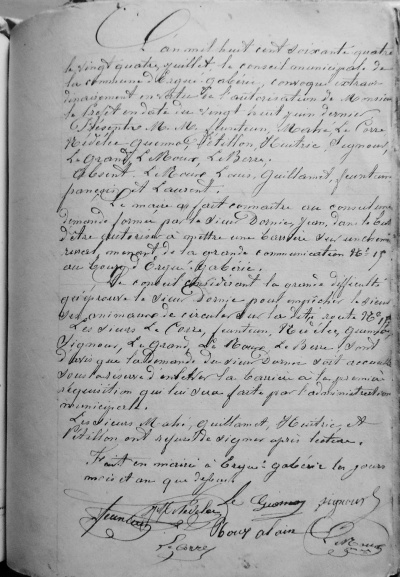 L'an mil huit cent soixante quatre
le vingt quatre juillet le conseil municipale de
la commune d'Ergué-gabéric, convoqué extraor-
dinairement en vertu de l'autorisation de Monsieur
le Préfet en date du vingt huit juin dernier
Présents M. M. Jeunteun, Mahé, Le Corre
Nédélec Quemon, Pétillon, Huitric, Signour,
Le Grand, Le Moux, Le Berre.
Absent. Le Moux Louis, Guillamet, feunteun
françois et Laurent.
Le maire a fait connaitre au conseil une
demande formée par le sieur Dornic, Jean, dans le but
d'être autorisé à mettre une barrière sur un chemin
rural, menant de la grande communication N° 15
au bourg d'Ergué-gabéric.
Le conseil considérant la grande difficulté
qu'éprouve le sieur Dornic pour empêcher le sieur
ses animaux de circuler sur la dite route N° 15
Les sieurs Le Corre, feunteun, Nédélec, Quemon
Signour, Le Grand, Le Moux, Le Berre sont
d'avis que la demande du sieur Dornic soit accueillie
sous la réserve d'enlever la barrière à la première
réquisition qui lui sera faite par l'administration
municipale.
Les sieurs Mahé, Guillamet, Huitric, et
Pétillon ont refusé de signer après lecture.
Fait en mairie à Ergué-gabéric les jours
mois et an que dessus.
feunteun Nédélec Le Quemon Signour
Le Roux alain
Le Corre